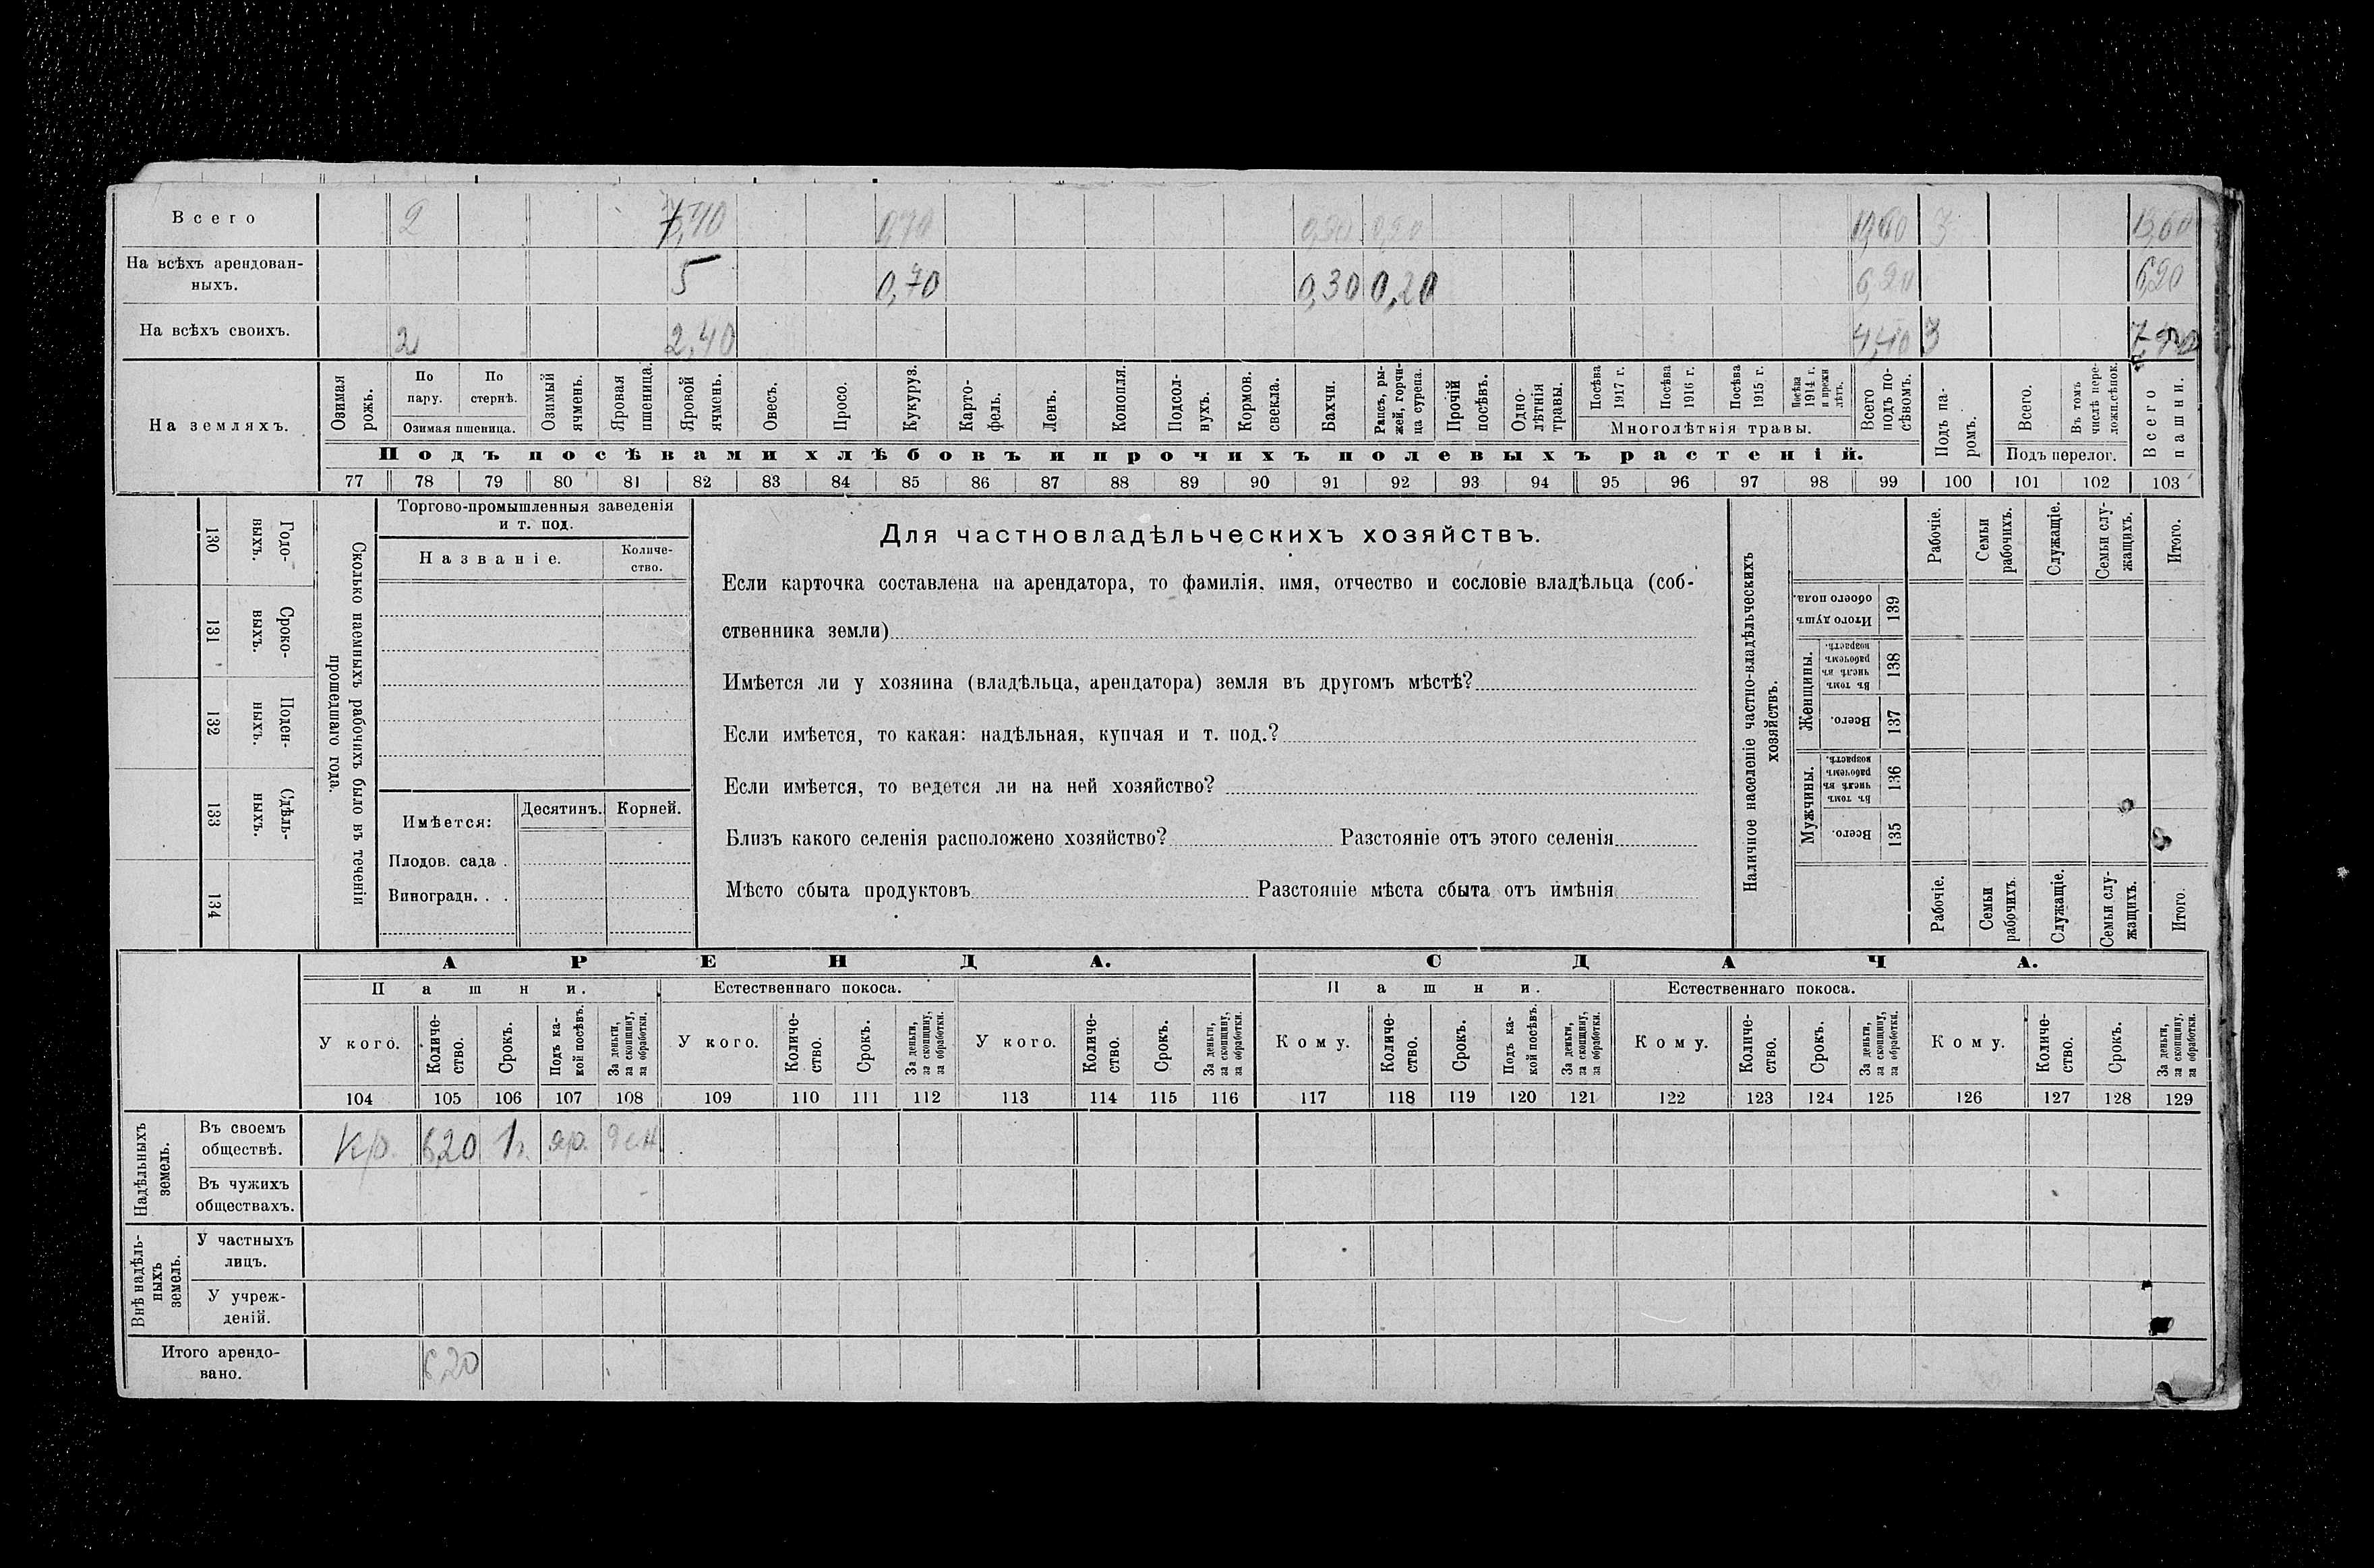 Всего 2 7,40 0,70 0,30 0,20 10,60 3 13,60
На всѣхъ арендован-
ныхъ. 5 0,70 0,30 0,20 6,20 6,20
На всѣхъ своихъ. 2 2,40 4,40 3
На земляхъ.
Озимая рожь.
По пару.
По стернѣ.
Озимая пшеница.
Озимый ячмень.
Яровая пшеница.
Яровой ячмень.
Овесъ.
Просо.
Кукуруз.
Карто-
фель.
Ленъ.
Конопля.
Подсол-
нухъ.
Кормов.
свекла.
Бахчи.
Рапсъ, ры-
жей, горчи-
ца сурепа.
Прочій
посѣвъ.
Одно-
лѣтнія
травы.
Посѣва
1917 г.
Посѣва
1916 г.
Посѣва
1915 г.
Посѣва
1914 г.
и прежн
лѣтъ.
Многолѣтнія травы.
Всего
подъ по-
сѣвомъ.
Подъ па-
ромъ.
Всего.
Въ томъ
числѣ пере-
ложн.сѣнок.
Подъ перелог.
Всего
пашни.
Подъ посѣвами хлѣбовъ и прочихъ полевыхъ растеній.
77 78 79 80 81 82 83 84 85 86 87 88 89 90 91 92 93 94 95 96 97 98 99 100 101 102 103
Сколько наемныхъ рабочихъ было въ теченіи
прошедшаго года.
Годо-
выхъ.
130
Сроко-
ныхъ.
131
Поден-
ныхъ.
132
Сдѣль-
ныхъ.
133
134
Торгово-промышленныя заведенія
и т. под.
Названіе.
Количе-
ство.
Имѣется:
Десятинъ. Корней.
Плодов. сада .
Виноградн. . .
Для частновладѣльческихъ хозяйствъ.
Если карточка составлена на арендатора, то фамилія, имя, отчество и сословіе владѣльца (соб-
ственника земли)
Имѣется ли у хозяина (владѣльца, арендатора) земля въ другомъ мѣстѣ?
Если имѣется, то какая: надѣльная, купчая и т. под.?
Если имѣется, то ведется ли на ней хозяйство?
Близъ какого селенія расположено хозяйство? Разстояніе отъ этого селенія
Мѣсто сбыта продуктовъ Разстояніе мѣста сбыта отъ имѣнія
Наличное населеніе частно-владѣльческихъ
хозяйствъ.
Рабочіе.
Семьи
рабочихъ.
Служащіе.
Семьи слу-
жащихъ.
Итого.
Итого душъ
обоего пола.
139
Женщины.
Въ томъ
числѣ въ
рабочемъ
возрастѣ.
138
Всего.
137
Мужчины.
Въ томъ
числѣ въ
рабочемъ
возрастѣ.
136
Всего.
135
Рабочіе.
Семьи
рабочихъ.
Служащіе.
Семьи слу-
жащихъ.
Итого.
АРЕНДА. СДАЧА.
Пашни. Естественнаго покоса. Пашни. Естественнаго покоса.
У кого.
Количе-
ство.
Срокъ.
Подъ ка-
кой посѣвъ.
За деньги,
за скопщину,
за обработки.
У кого.
Количе-
ство.
Срокъ.
За деньги,
за скопщину,
за обработки.
У кого.
Количе-
ство.
Срокъ.
За деньги,
за скопщину,
за обработки.
Кому.
Количе-
ство.
Срокъ.
Подъ ка-
кой посѣвъ.
За деньги,
за скопщину,
за обработки.
Кому.
Количе-
ство.
Срокъ.
За деньги,
за скопщину,
за обработки.
Кому.
Количе-
ство.
Срокъ.
За деньги,
за скопщину,
за обработки.
104 105 106 107 108 109 110 111 112 113 114 115 116 117 118 119 120 121 122 123 124 125 126 127 128 129
Надѣльныхъ
земель.
Въ своемъ
обществѣ. Кр. 6,20 яр. ден
Въ чужихъ
обществахъ.
Внѣ надѣль-
ныхъ
земель.
У частныхъ
лицъ.
У учреж-
деній.
Итого арендо-
вано. 6,20